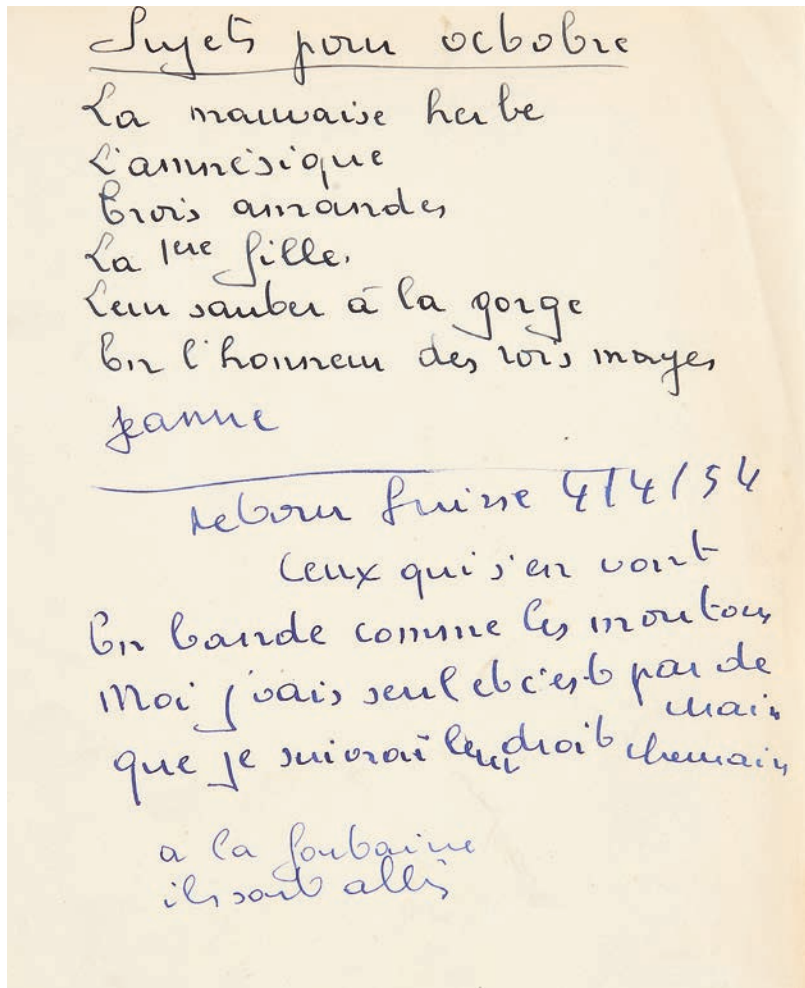 Sujets pour octobre
La mauvaise herbe
L'amnésique
Trois amandes
La 1ere fille.
Leur sauter à la gorge
En l'honneur des rois mages
Jeanne
retour Suisse 4/4/54
Ceux qui s'en vont
En bande comme les moutons
Moi j'vais seul et c'est pas de
main
que je suivrai leur droit chemain
a la fontaine
ils sont allés